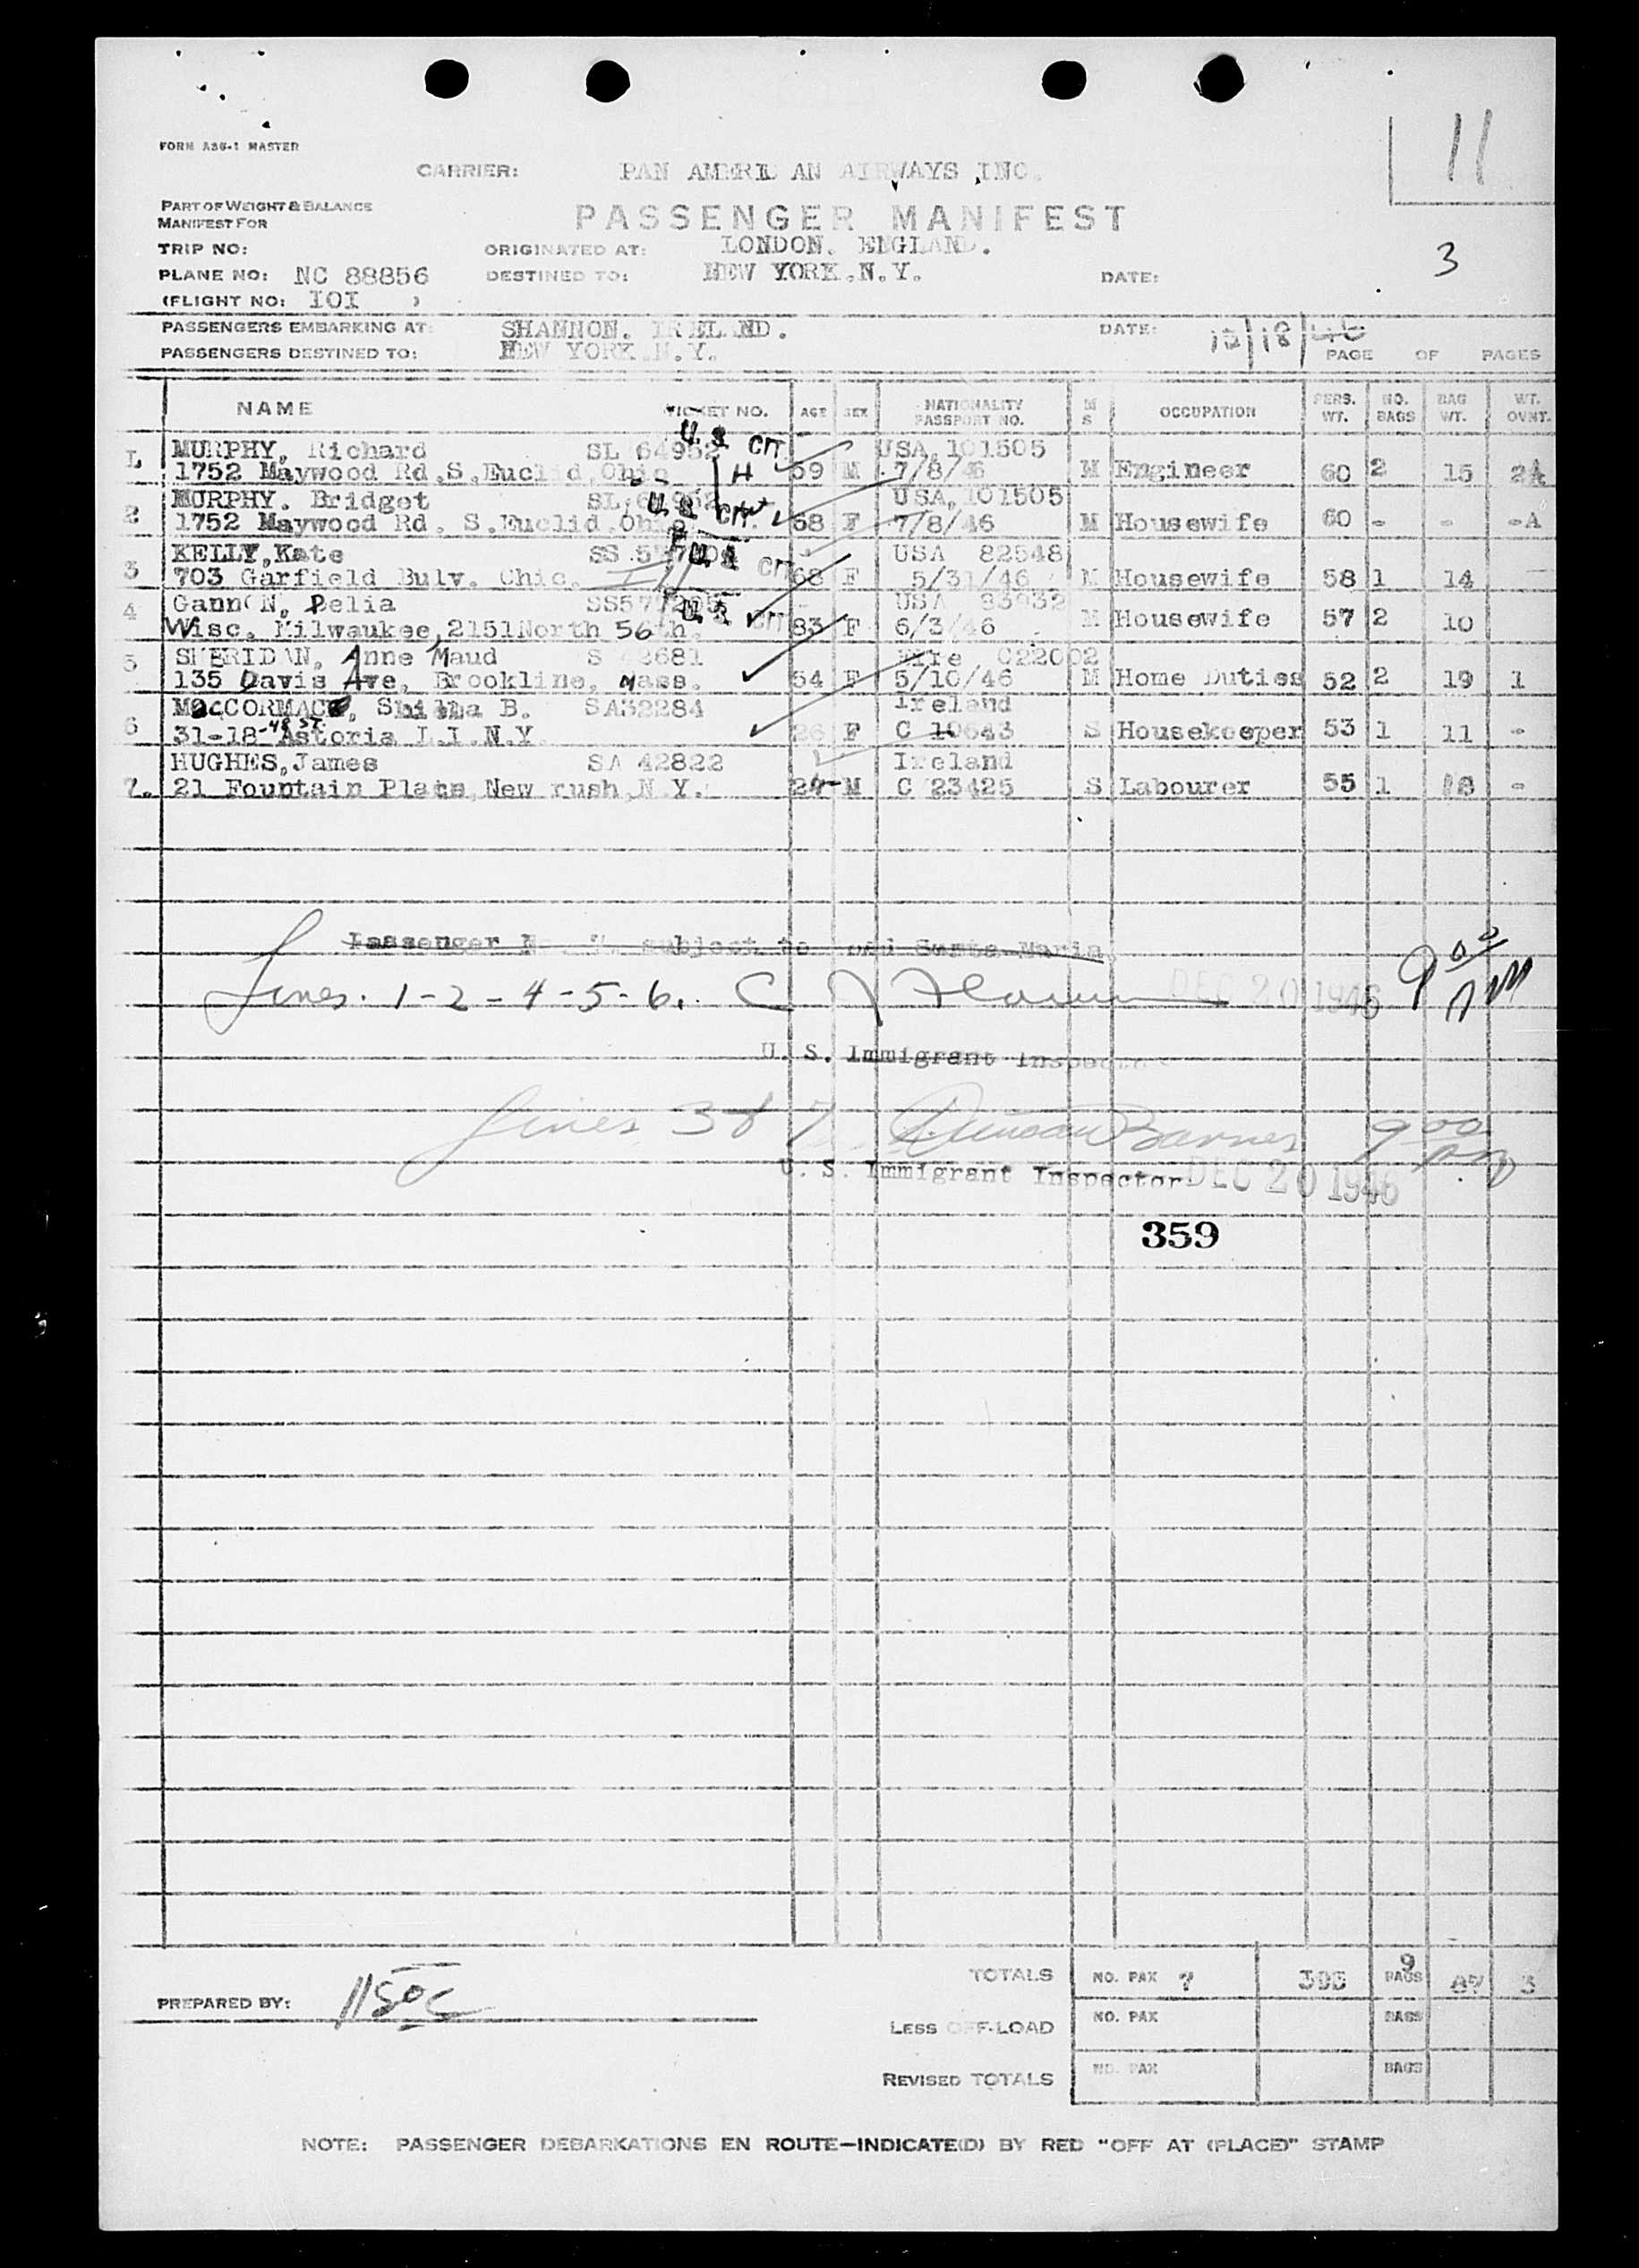 11
FORM ASG-1 MASTER
CARRIER: PAN AMERI AN AIRWAYS INC.
PART OF WEIGHT & BALANCE
MANIFEST FOR
PASSENGER MANIFEST
TRIP NO: ORIGINATED AT: LONDON. ENGLAND.
3
PLANE NO: NC 88856 DESTINED TO: NEW YORK.N.Y. DATE:
(FLIGHT NO: IOI )
PASSENGERS EMBARKING AT: SHANNON. IRELAND. DATE: 12/18/46
PASSENGERS DESTINED TO: NEW YORK.N.Y. PAGE OF PAGES
NAME TICKET NO. AGE SEX NATIONALITY PASSPORT NO. M S OCCUPATION PERS. WT. NO. BAGS BAG WT. WT. OVNT.
MURPHY, Richard SL 64952 U.S. CIT. USA, 101505
1 1752 Maywood Rd.S.Euclid,Ohio H 59 M 7/8/46 M Engineer 60 2 15
MURPHY. Bridget U.S. CIT. USA, 101505
2 1752 Maywood Rd, S.Euclid,Ohio 68 F 7/8/46 M Housewife 60 - - -A
KELLY,Kate U.S. CIT USA 82548
3 703 Garfield Bulv. Chic. 68 F 5/31/46 M Housewife 58 1 14
4 GannON, Delia U.S. CIT USA
Wisc. Milwaukee,2151North 56th. 83 F 6/3/46 M Housewife 57 2 10
5 SHERIDAN, Anne Maud S 42681 Eire C22002
135 Davis Ave, Brookline, Mass. 54 F 5/10/46 M Home Duties 52 2 19 1
MacCORMACK, Sheila B. SA32284 Ireland
6 31-18-48 ST. Astoria L.I.N.Y. 26 F C 10643 S Housekeeper 53 1 11 -
HUGHES,James SA 42822 Ireland
7. 21 Fountain Place, New rush,N.Y. 24 M C 23425 S Labourer 55 1 18 -
Passenger No. 7. subject to Santa Maria
Lines. 1-2-4-5-6. DEC 20 1946 9 00 PM
U. S. Immigrant Inspector
Lines 3 & 7 Duncan Barnes 9 00 PM
U. S. Immigrant Inspector DEC 20 1946
359
TOTALS NO. PAX 7 395 9 BAGS 87 3
PREPARED BY:
LESS OFF-LOAD NO. PAX BAGS
REVISED TOTALS NO. PAX BAGS
NOTE: PASSENGER DEBARKATIONS EN ROUTE—INDICATE(D) BY RED "OFF AT (PLACE)" STAMP